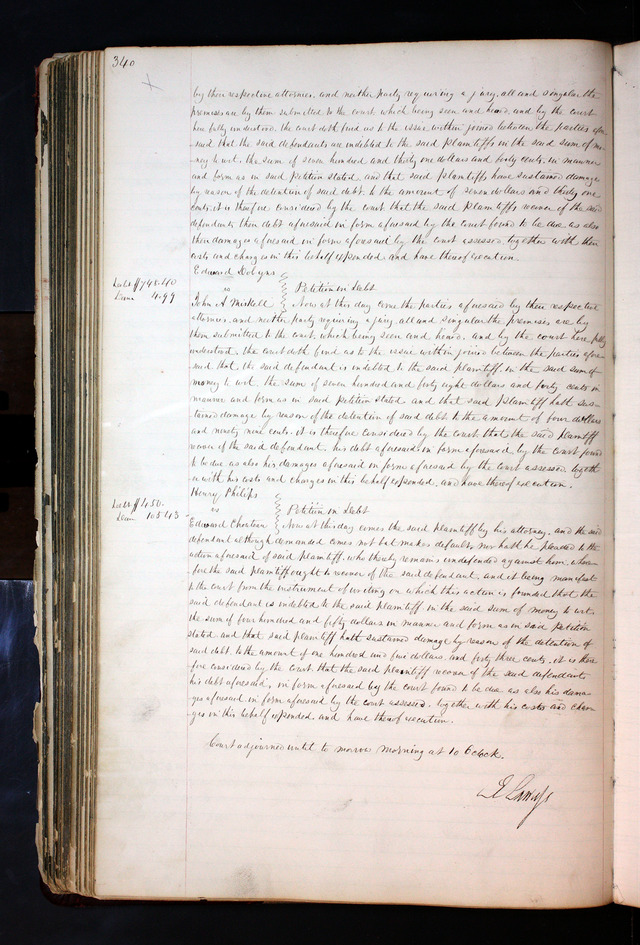 340
by their respective attornies, and neither party requiring a jury, all and singular the
premises are by them submitted to the court which being seen and heard, and by the court
here fully understood, the court doth find as to the issue within joined between the parties afore
said that the said defendants are indebted to the said plaintiffs in the said sum of mo
ney to wit, the sum of seven hundred and thirty one dollars and forty cents in manner
and form as in said petition stated, and that said plaintiffs have sustained damage
by reason of the detention of said debt to the amount of seven dollars and thirty one
cents, it is therefore considered by the court that the said plaintiffs recover of the said
defendants their debt aforesaid in form aforesaid by the court found to be due as also
their damages aforesaid in form aforesaid by the court assessed, together with their
costs and charges in this behalf expended, and have thereof execution.
Edward Dobyns
Debt $748.40
vs Petition in Debt
Dam 4.99
John A Miskell Now at this day come the parties aforesaid by their respective
attornies, and neither party requiring a jury, all and singular the premises are by
them submitted to the court, which being seen and heard, and by the court here fully
understood, the court doth find as to the issue within joined between the parties afore
said that the said defendant is indebted to the said plaintiff, in the said sum of
money to wit, the sum of seven hundred and forty eight dollars and forty cents in
manner and form as in said petition stated and that said plaintiff hath sus
tained damage by reason of the detention of said debt to the amount of four dollars
and ninety nine cents, it is therefore considered by the court that the said plaintiff
recover of the said defendant, his debt aforesaid in form aforesaid by the court found
to be due as also his damages aforesaid in form aforesaid by the court assessed togeth
er with his costs and charges in this behalf expended, and have thereof execution.
Henry Philips
Debt $450.
vs Petition in Debt
Dam 105.43
Edward Chouteau Now at this day comes the said plaintiff by his attorney, and the said
defendant although demanded comes not but makes default, nor hath he pleaded to the
action aforesaid of said plaintiff, who thereby remains undefended against him, where
fore the said plaintiff ought to recover of the said defendant, and it being manifest
to the court from the instrument of writing on which this action is founded that the
said defendant is indebted to the said plaintiff in the said sum of money to wit,
the sum of four hundred and fifty dollars in manner and form as in said petition
stated and that said plaintiff hath sustained damage by reason of the detention of
said debt, to the amount of one hundred and five dollars and forty three cents, it is there
fore considered by the court that the said plaintiff recover of the said defendant,
his debt aforesaid, in form aforesaid by the court found to be due as also his dama
ges aforesaid in form aforesaid by the court assessed, together with his costs and char
ges in this behalf expended, and have thereof execution.
Court adjourned until to morrow morning at 10 Oclock.